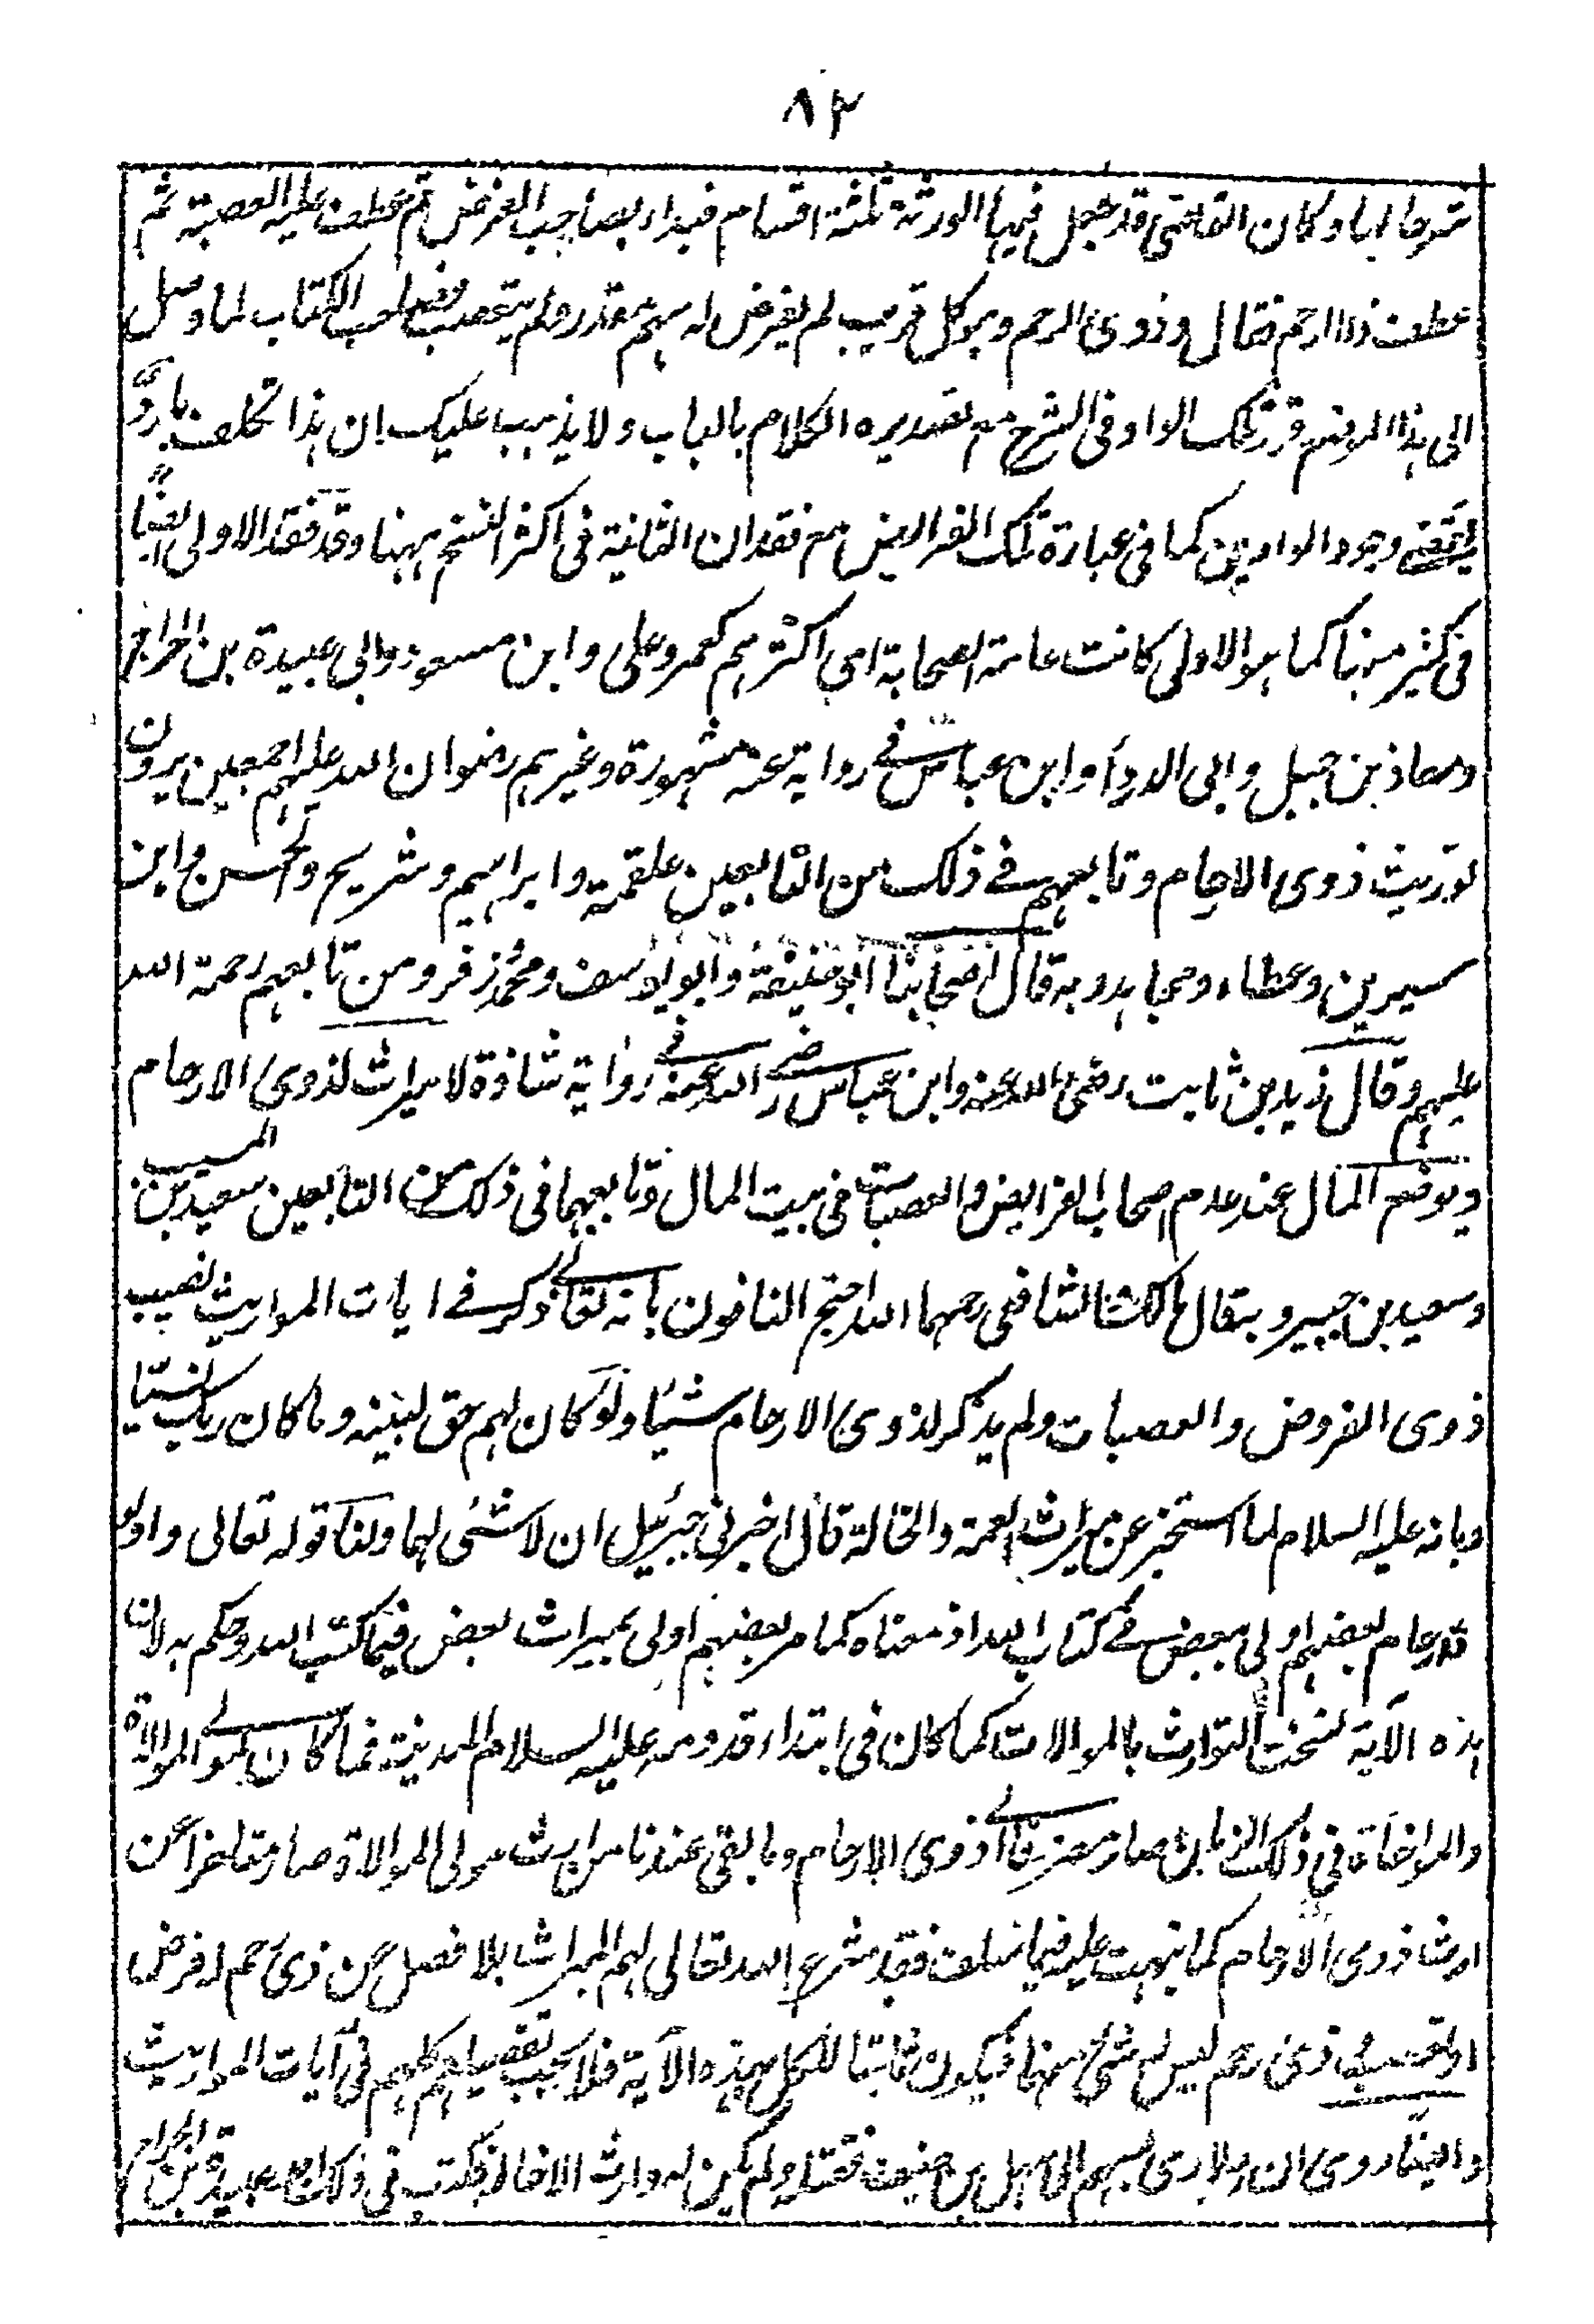 ٨٢
شرحا لها وكان القاضى قد جعل فيها الورثة ثلثة اقسام فبداء بصاحب الفرض ثم عطف عليه العصبة ثم
عطف ذا الرحم فقال وذوى الرحم وهو كل قريب لم يفرض له سهم مقدر ولم يتعصب فصاحب الكتاب لما وصل
الى هذا الموضع قرر تلك الواو فى الشرح مع تصديره الكلام بالباب ولا يذهب عليك ان هذا تكلف بارد
يقتضى وجود الواوين كما فى عبارة تلك الفرائض مع فقدان الثانية فى اكثر النسخ ههنا وقد فقد الاولى ايضًا
فى كثير منها كما هو الاولى كانت عامة الصحابة اى اكثرهم كعمر وعلى وابن مسعود وابى عبيدة بن الجراح
ومعاذ بن جبل وابى الدرداء وابن عباس فے رواية عنه مشهورة وغيرهم رضوان الله عليهم اجمعين يرون
توريث ذوى الارحام وتابعهم فے ذلك من التابعين علقمة وابراهيم وشريح والحسن وابن
سيرين وعطاء ومجاهد وبه قال اصحابنا ابو حنيفة وابو يوسف ومحمد وزفر ومن تابعهم رحمة الله
عليهم وقال زيد بن ثابت رضى الله عنه وابن عباس رضے الله عنه فے رواية شاذة لا ميراث لذوى الارحام
ويوضع المال عند عدم اصحاب الفرائض والعصبات فى بيت المال وتابعهما فى ذلك من التابعين سعيد بن المسيب
وسعيد بن جبير وبه قال مالك والشافعى رحمهما الله احتج النافون بانه تعالے ذكر فے ايات المواريث نصيب
ذوى الفروض والعصبات ولم يذكر لذوى الارحام شيئا ولو كان لهم حق لبينه وما كان ربك نسيّا
وبانه عليه السلام لما استخبر عن ميراث العمة والخالة قال اخبرنى جبرئيل ان لا شئى لهما ولنا قوله تعالى واولو
الارحام بعضهم اولى ببعض فے كتاب الله اذ معناه كما مر بعضهم اولى بميراث بعض فيما كتب الله وحكم به لان
هذه الآية نسخت التوارث بالموالات كما كان فى ابتداء قدومه عليه السلام المدينة فما كان لمولے الموالاة
والمواخاة فى ذلك الزمان صار مصروفا الے ذوى الارحام وما بقى عندنا من ارث مولى الموالاة صار متاخرا عن
ارث ذوى الارحام كما نبهت عليه فيما سلف فقد شرع الله تعالى لهم الميراث بلا فصل عن ذى رحم له فرض
او تعصيب وذى رحم ليس له شئ منهما فيكون ثابتا للكل بهذه الآية فلا يجب تفصيلهم كلهم فى آيات المواريث
وايضًا روى ان رجلا رمى بسهم الى سهل بن حنيف فقتله ولم يكن له وارث الا خاله فكتب فى ذلك ابو عبيدة بن الجراح